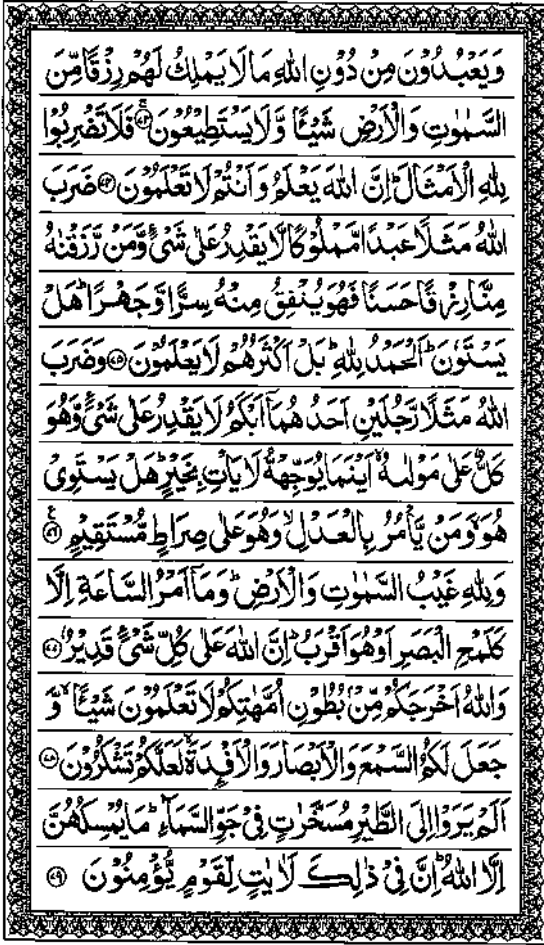 وَيَعْبُدُوْنَ مِنْ دُوْنِ اللهِ مَا لَا يَمْلِكُ لَهُمْ رِزْقًا مِّنَ
السَّمٰوٰتِ وَالْاَرْضِ شَيْئًا وَّلَا يَسْتَطِيْعُوْنَ ۚ﴿۷۳﴾ فَلَا تَضْرِبُوْا
لِلّٰهِ الْاَمْثَالَ ؕ اِنَّ اللهَ يَعْلَمُ وَاَنْتُمْ لَا تَعْلَمُوْنَ ﴿۷۴﴾ ضَرَبَ
اللهُ مَثَلًا عَبْدًا مَّمْلُوْكًا لَّا يَقْدِرُ عَلٰى شَىْءٍ وَّمَنْ رَّزَقْنٰهُ
مِنَّا رِزْقًا حَسَنًا فَهُوَ يُنْفِقُ مِنْهُ سِرًّا وَّجَهْرًا ؕ هَلْ
يَسْتَوٗنَ ؕ اَلْحَمْدُ لِلّٰهِ ؕ بَلْ اَكْثَرُهُمْ لَا يَعْلَمُوْنَ ﴿۷۵﴾ وَضَرَبَ
اللهُ مَثَلًا رَّجُلَيْنِ اَحَدُهُمَآ اَبْكَمُ لَا يَقْدِرُ عَلٰى شَىْءٍ وَّهُوَ
كَلٌّ عَلٰى مَوْلٰىهُ ۙ اَيْنَمَا يُوَجِّهْهُّ لَا يَاْتِ بِخَيْرٍ ؕ هَلْ يَسْتَوِىْ
هُوَ ۙ وَمَنْ يَّاْمُرُ بِالْعَدْلِ ۙ وَهُوَ عَلٰى صِرَاطٍ مُّسْتَقِيْمٍ ﴿۷۶﴾
وَلِلّٰهِ غَيْبُ السَّمٰوٰتِ وَالْاَرْضِ ؕ وَمَآ اَمْرُ السَّاعَةِ اِلَّا
كَلَمْحِ الْبَصَرِ اَوْ هُوَ اَقْرَبُ ؕ اِنَّ اللهَ عَلٰى كُلِّ شَىْءٍ قَدِيْرٌ ﴿۷۷﴾
وَاللهُ اَخْرَجَكُمْ مِّنْۢ بُطُوْنِ اُمَّهٰتِكُمْ لَا تَعْلَمُوْنَ شَيْئًا ۙ وَّ
جَعَلَ لَكُمُ السَّمْعَ وَالْاَبْصَارَ وَالْاَفْـِٕدَةَ ۙ لَعَلَّكُمْ تَشْكُرُوْنَ ﴿۷۸﴾
اَلَمْ يَرَوْا اِلَى الطَّيْرِ مُسَخَّرٰتٍ فِىْ جَوِّ السَّمَآءِ ؕ مَا يُمْسِكُهُنَّ
اِلَّا اللهُ ؕ اِنَّ فِىْ ذٰلِكَ لَاٰيٰتٍ لِّقَوْمٍ يُّؤْمِنُوْنَ ﴿۷۹﴾